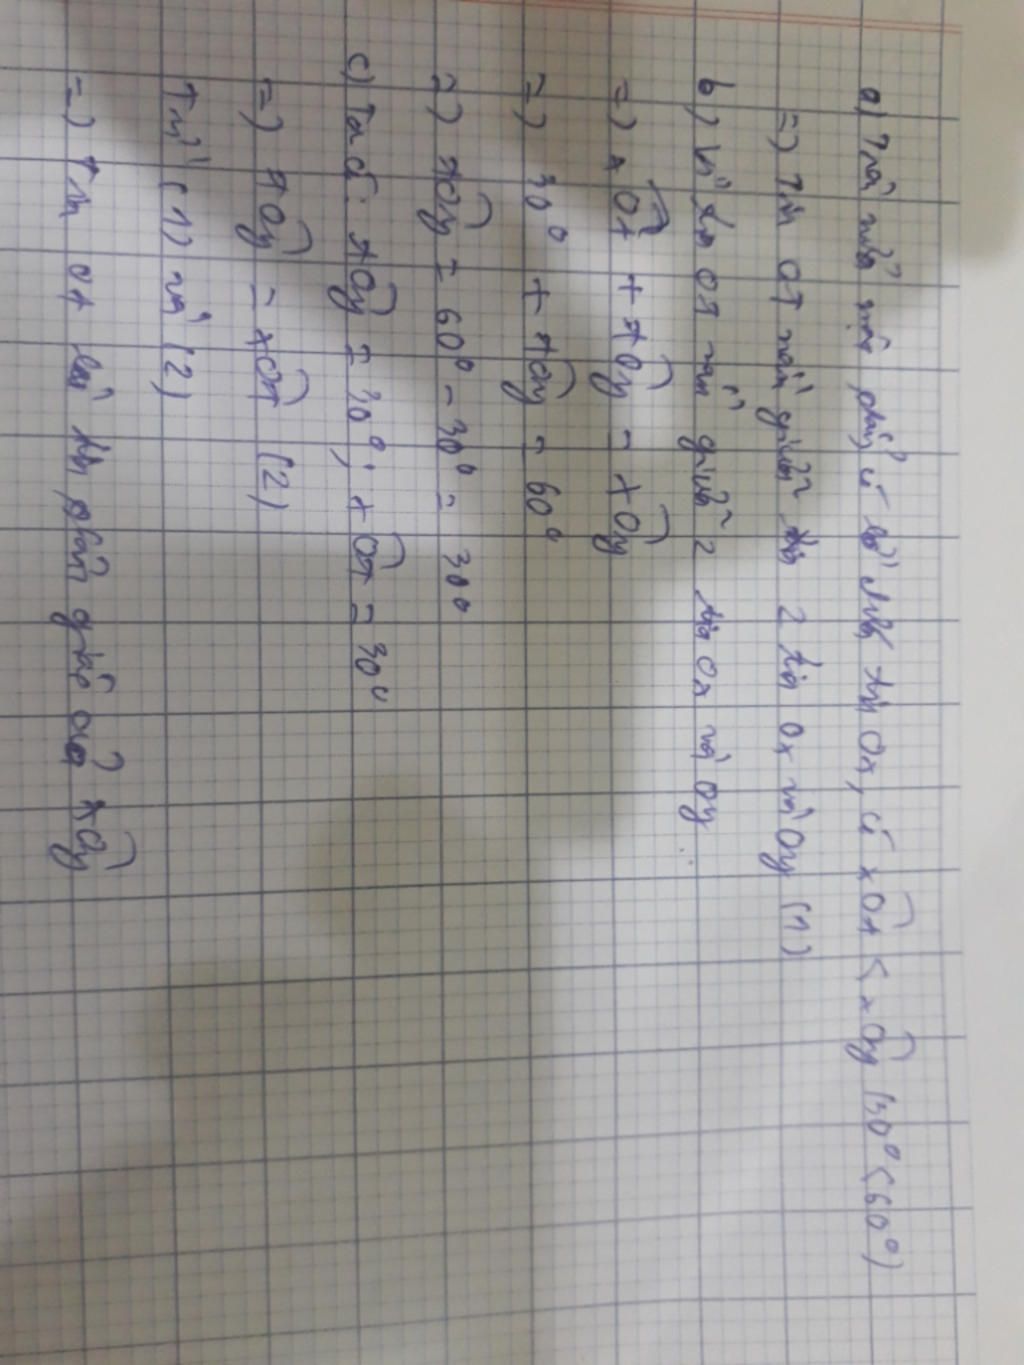 a) Trên nửa mặt phẳng có bờ chứa tia Ox, có xOt < xOy (30° < 60°)
=) Tia Ot nằm giữa 2 tia Ox và Oy (1)
b) Vì tia Ot nằm giữa 2 tia Ox và Oy
=) xOt + tOy = xOy
=) 30° + tOy = 60°
=) tOy = 60° - 30° = 30°
c) Ta có: tOy = 30°; xOt = 30°
=) tOy = xOt (2)
Từ (1) và (2)
=) Tia Ot là tia phân giác của xOy